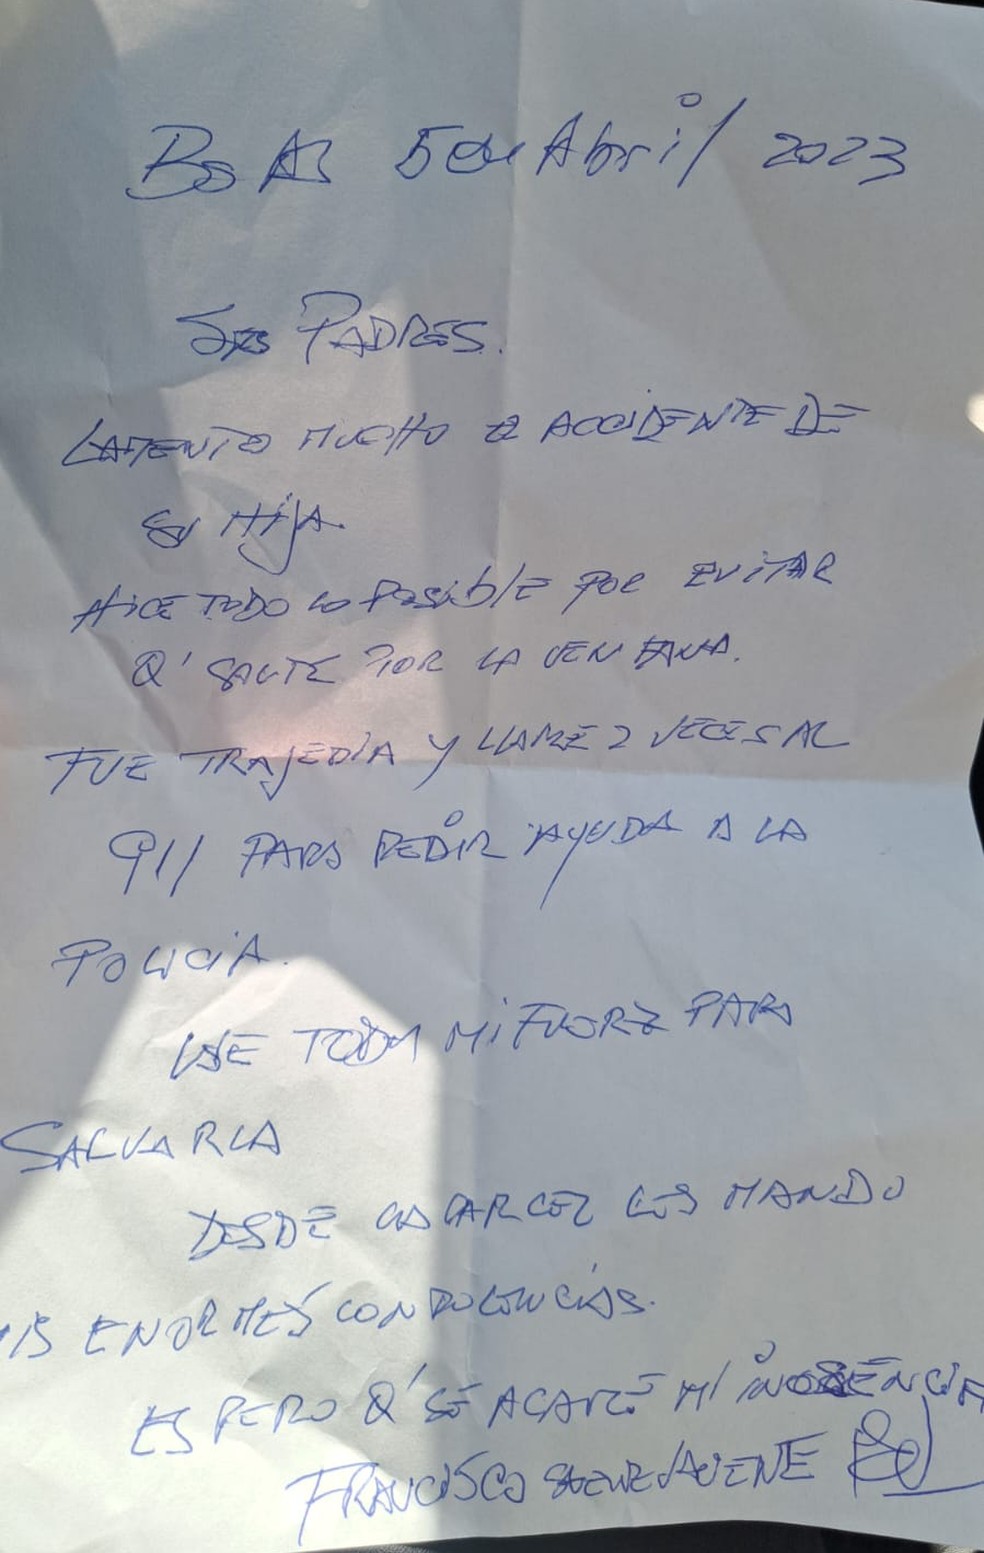 Bs As 5 de Abril / 2023
Sres PADRES.
LAMENTO MUCHO EL ACCIDENTE DE
SU HIJA.
HICE TODO LO POSIBLE POR EVITAR
Q' SALTE POR LA VENTANA.
FUE TRAJEDIA Y LLAME 2 VECES AL
911 PARA PEDIR AYUDA A LA
POLICIA.
USE TODA MI FUERZA PARA
SALVARLA
DESDE LA CARCEL LES MANDO
MIS ENORMES CONDOLENCIAS.
ESPERO Q' SE ACLARE MI INOSENCIA
FRANCISCO SAENZ VALIENTE